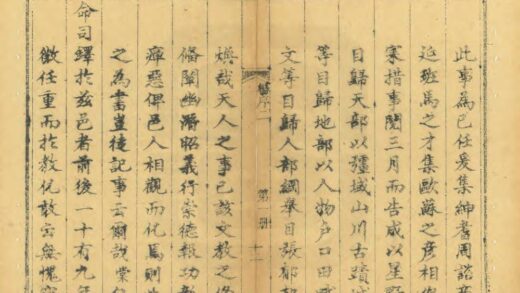 此事為己任爰集紳耆周諮
延班馬之才集歐蘇之彥相
寀措事閱三月而告成以星野
目歸天部以疆域山川古蹟城
等目歸地部以人物戶口田
文等目歸人部綱舉目張郁
舊序二 第一册 十二
煥哉天人之事已該文教之
脩闡幽潛昭義行崇德報功彰
癉惡俾邑人相觀而化焉則
之為書豈徒記事云爾哉業
命司鐸於兹邑者前後一十有九年
微任重而於教化無愧